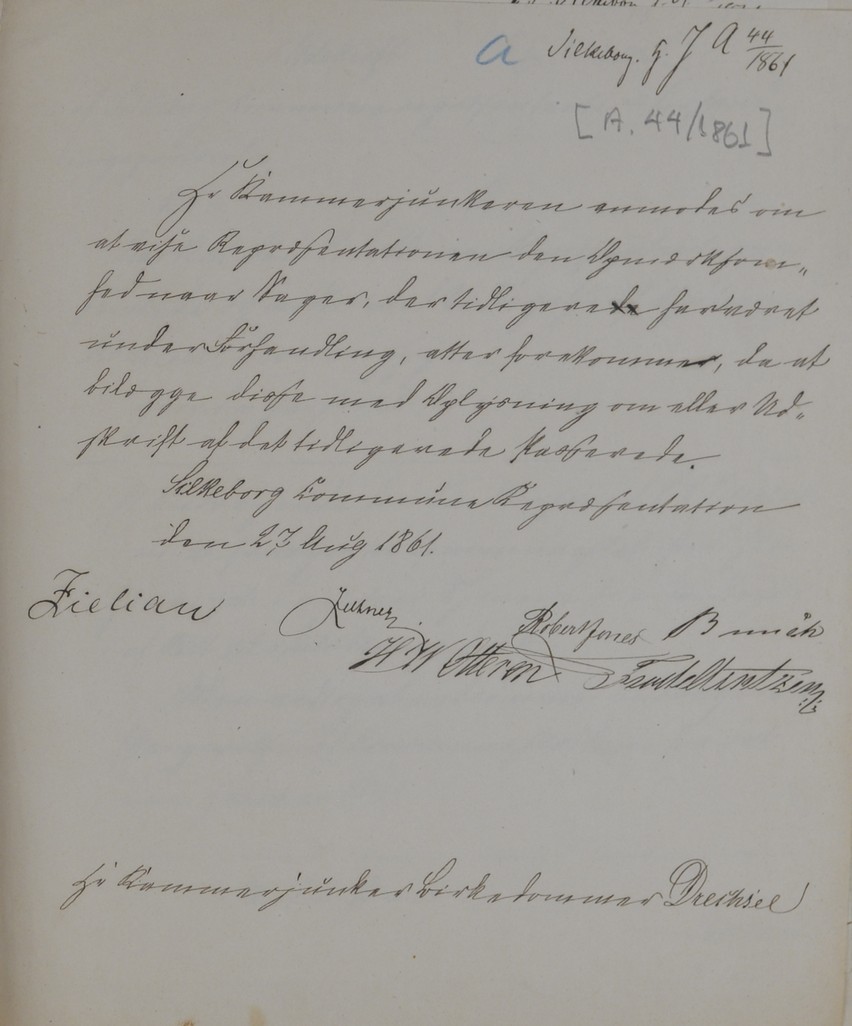 a Silkeborg. J A 44/1861
[A. 44/1861]
Hr Kammerjunkeren anmodes om
at vise Repræsentationen den Opmærksom„
hed naar Sager, der tidligere har været
under Forhandling, atter forekommer, da at
bilægge disse med Oplysning om eller Ud„
skrift af det tidligerede Passerede.
Silkeborg Commune Repræsentation
den 27 Aug 1861.
Zielian Robert Jones
H W Otteren
Hr Kammerjunker Birkedommer Drechsel